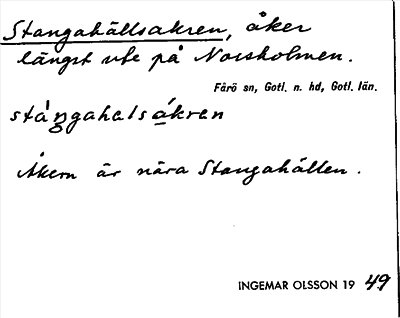 Stangahällsakren, åker
längst ute på Norsholmen.
Fårö sn, Gotl. n. hd, Gotl. län.
ståŋgahalsákren
Åkern är nära Stangahällen.
INGEMAR OLSSON 19 49